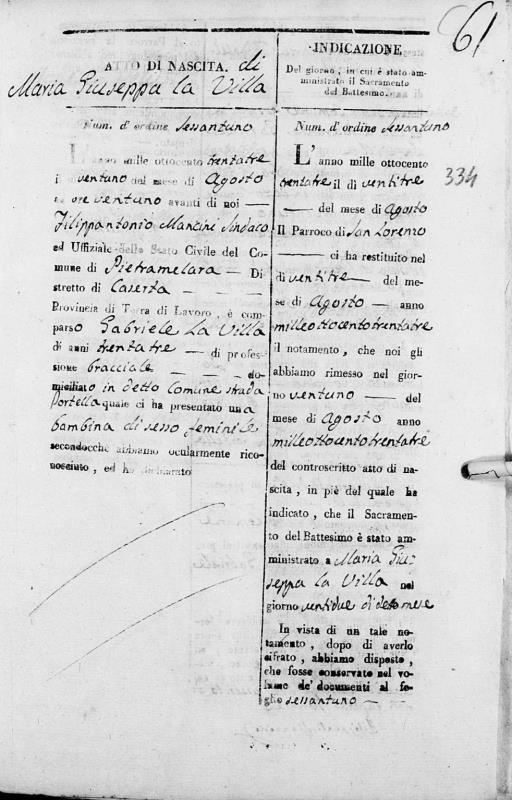 61
ATTO DI NASCITA. di
Maria Giuseppa la Villa
Num. d' ordine Sessantuno
L' anno mille ottocento trentatre
il ventuno del mese di Agosto
ad ore ventuno avanti di noi —
Filippantonio Mancini Sindaco
ed Uffiziale dello Stato Civile del Co-
mune di Pietramelara — Di-
stretto di Caserta —
Provincia di Terra di Lavoro, è com-
parso Gabriele La Villa
di anni trentatre — di profes-
sione bracciale — do-
miciliato in detto Comune strada
Portella quale ci ha presentato una
bambina di sesso feminile
secondocchè abbiamo ocularmente rico-
nosciuto, ed ha dichiarato
INDICAZIONE
Del giorno, in cui è stato am-
ministrato il Sacramento
del Battesimo.
Num. d' ordine Sessantuno
L' anno mille ottocento
trentatre il dì ventitre
— del mese di Agosto
Il Parroco di San Lorenzo
— ci ha restituito nel
dì ventitre — del me-
se di Agosto — anno
milleottocentotrentatre
il notamento, che noi gli
abbiamo rimesso nel gior-
no ventuno — del
mese di Agosto anno
milleottocentotrentatre
del controscritto atto di na-
scita, in piè del quale ha
indicato, che il Sacramen-
to del Battesimo è stato am-
ministrato a Maria Giu-
seppa la Villa nel
giorno ventidue di deto mese
In vista di un tale no-
tamento, dopo di averlo
cifrato, abbiamo disposto,
che fosse conservato nel vo-
lume de' documenti al fo-
glio sessantuno —
334